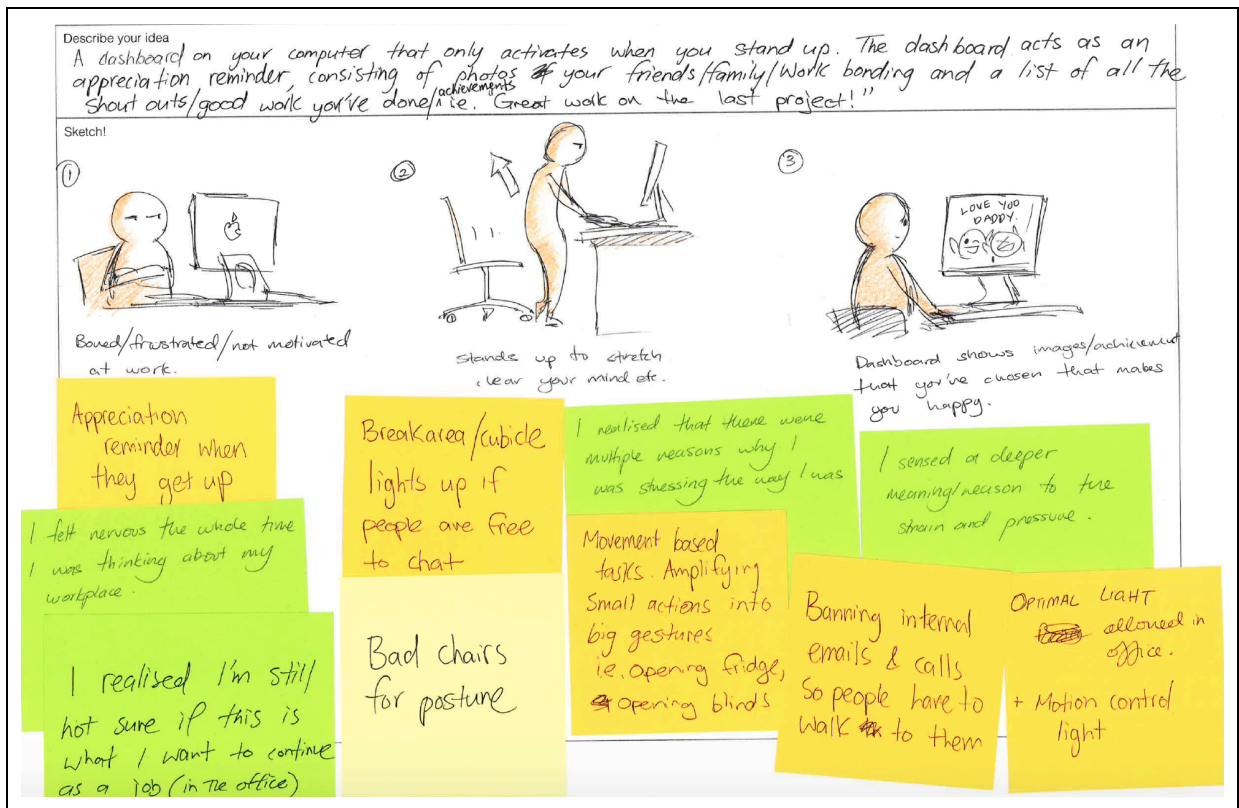 Describe your idea
A dashboard on your computer that only activates when you stand up. The dashboard acts as an
appreciation reminder, consisting of photos of your friends/family/work bonding and a list of all the
shout outs/good work you've done/achievements i.e. Great work on the last project!"
Sketch!
1
2
3
LOVE YOU
DADDY.
Bored/frustrated/not motivated
at work.
Stands up to stretch
clear your mind etc.
Dashboard shows images/achievement
that you've chosen that makes
you happy.
Appreciation
reminder when
they get up
I felt nervous the whole time
I was thinking about my
workplace.
I realised I'm still
not sure if this is
what I want to continue
as a job (in the office)
Breakarea/cubicle
lights up if
people are free
to chat
Bad chairs
for posture
I realised that there were
multiple reasons why I
was stressing the way I was
Movement based
tasks. Amplifying
small actions into
big gestures
i.e. opening fridge,
opening blinds
I sensed a deeper
meaning/reason to the
strain and pressure.
Banning internal
emails & calls
So people have to
walk to them
OPTIMAL LIGHT
allowed in
office.
+ Motion control
light